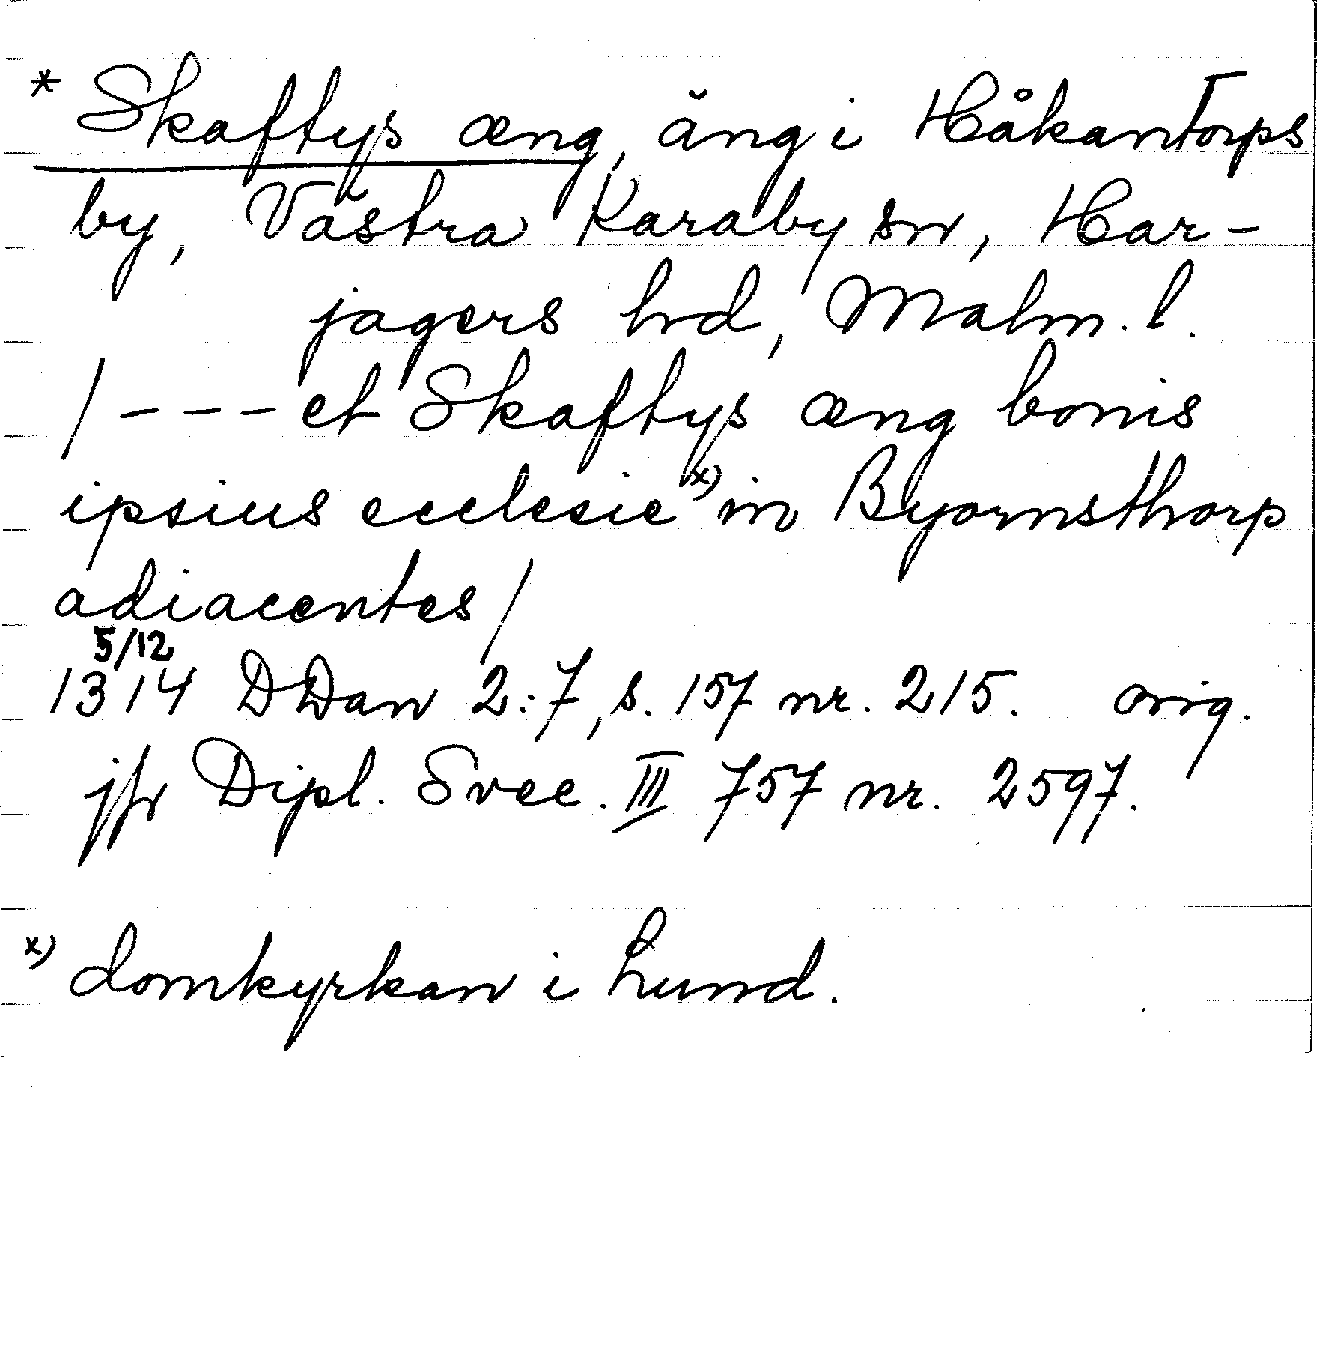 * Skaftys æng, äng i Håkantorps
by, Västra Karaby sn, Har-
jagers hd, Malm. l.
/ - - - et Skaftys æng bonis
ipsius ecclesie x) in Byornsthorp
adiacentes /
5/12
1314 DDan 2:7, s. 157 nr. 215. orig.
jfr Dipl. Svec. III 757 nr. 2597.
x) domkyrkan i Lund.